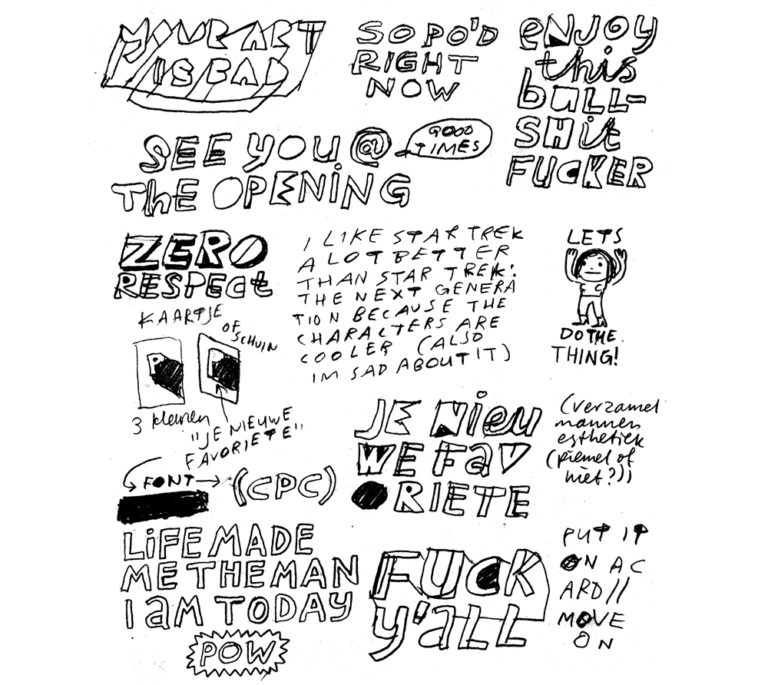 YOUR ART
IS BAD
SO PO'D
RIGHT
NOW
ENJOY
this
bull-
SHit
FUCKER
SEE YOU @
THE OPENING
GOOD
TIMES
ZERO
RESPECt
I LIKE STAR TREK
A LOT BETTER
THAN STAR TREK:
THE NEXT GENERA
TION BECAUSE THE
CHARACTERS ARE
COOLER (ALSO
IM SAD ABOUT IT)
LETS
DO THE
THING!
KAARTJE
OF
SCHUIN
3 kleuren
"JE NIEUWE
FAVORIETE"
FONT
(CPC)
JE Nieu
WE FAV
ORIETE
(verzamel
mannen
esthetiek
(piemel of
niet?))
LiFE MADE
ME THE MAN
I am TODAY
POW
FUCK
y'all
PUT IT
ON A C
ARD//
MOVE
ON